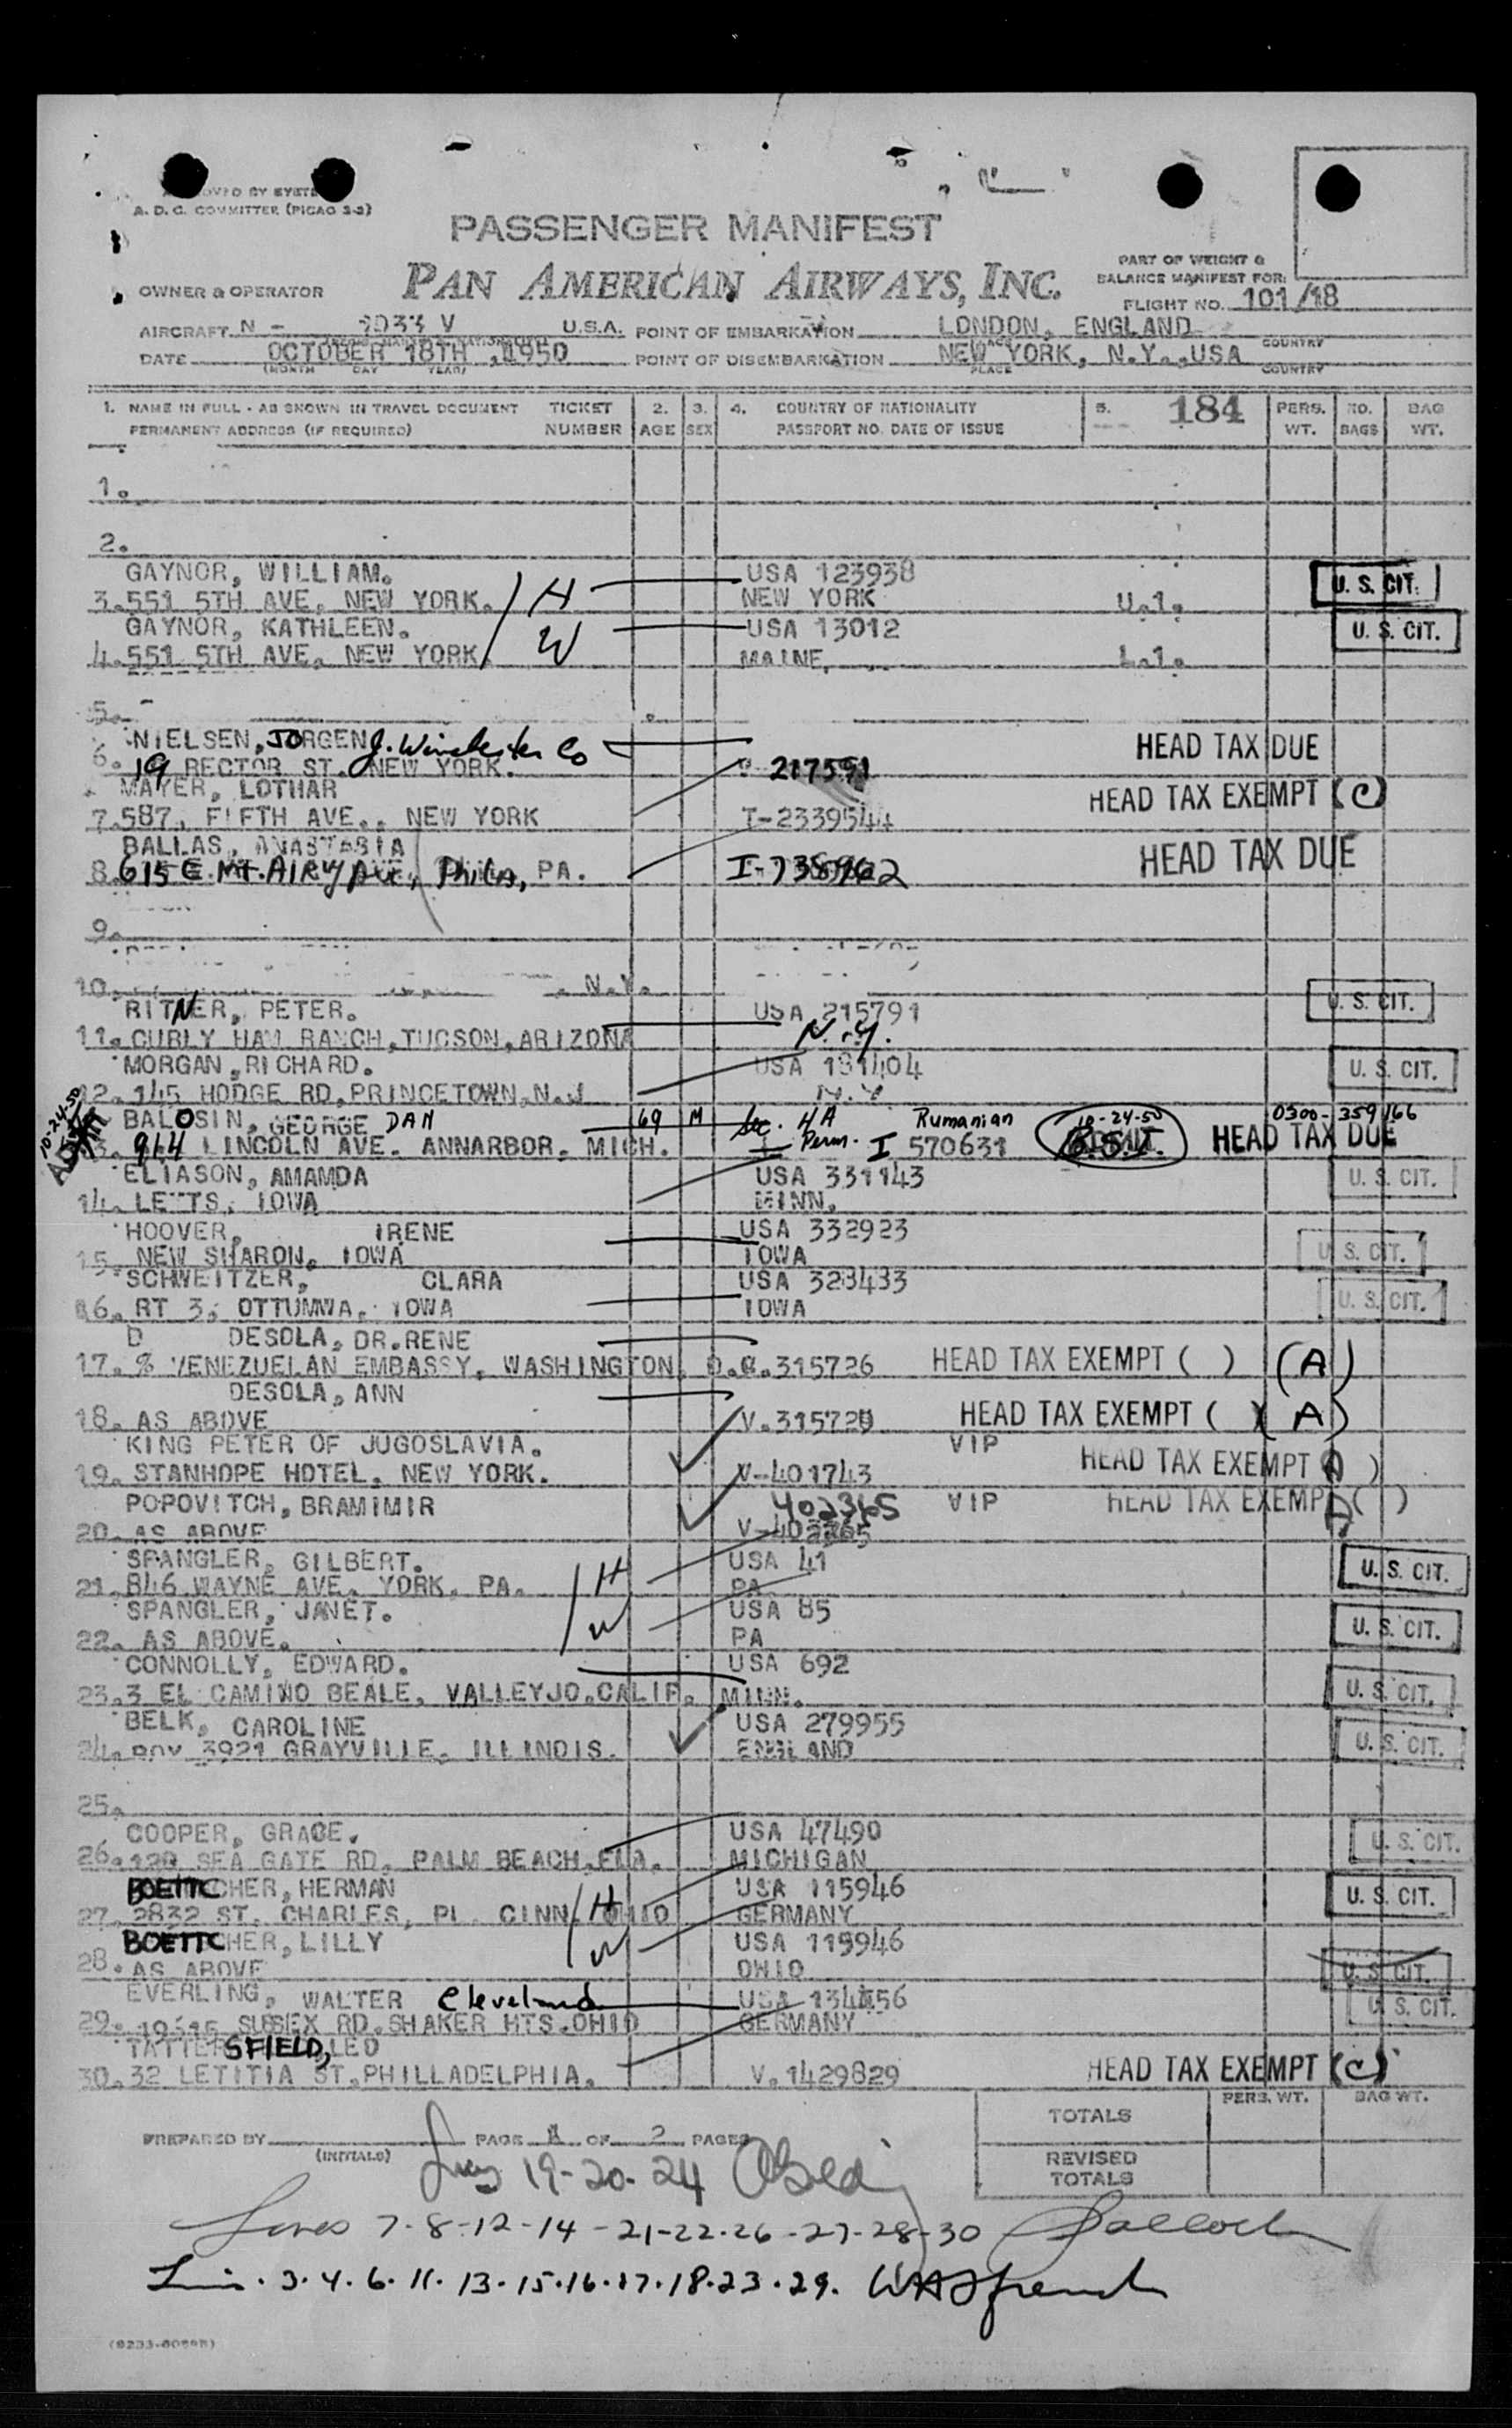 A. D. C. COMMITTEE (PICAO 2-2)
PASSENGER MANIFEST
PAN AMERICAN AIRWAYS, INC.
OWNER & OPERATOR
PART OF WEIGHT &
BALANCE MANIFEST FOR:
FLIGHT NO. 101/18
AIRCRAFT N - 1033 V U.S.A. POINT OF EMBARKATION LONDON, ENGLAND
DATE OCTOBER 18TH, 1950 POINT OF DISEMBARKATION NEW YORK, N.Y., USA
(MONTH DAY YEAR) PLACE COUNTRY
1. NAME IN FULL - AS SHOWN IN TRAVEL DOCUMENT TICKET 2. 3. 4. COUNTRY OF NATIONALITY 5. 184 PERS. NO. BAG
PERMANENT ADDRESS (IF REQUIRED) NUMBER AGE SEX PASSPORT NO. DATE OF ISSUE WT. BAGS WT.
1.
2.
GAYNOR, WILLIAM. H USA 123938 U. S. CIT.
3. 551 5TH AVE, NEW YORK. NEW YORK U.1.
GAYNOR, KATHLEEN. W USA 13012 U. S. CIT.
4. 551 5TH AVE, NEW YORK MAINE,
5.
NIELSEN, JORGEN J. Winchester Co HEAD TAX DUE
6. 19 RECTOR ST. NEW YORK. 217591
MAYER, LOTHAR HEAD TAX EXEMPT (C)
7. 587, FIFTH AVE., NEW YORK T-2339544
BALLAS, ANASTASIA HEAD TAX DUE
8. 615 E. Mt. AIRY AVE, PhilA, PA. I-738962
9.
10. N.Y.
RITNER, PETER. USA 215791 U. S. CIT.
11. CURLY HAM RANCH, TUCSON, ARIZONA N.Y.
MORGAN, RICHARD. USA 191404 U. S. CIT.
12. 145 HODGE RD, PRINCETOWN, N.J N.Y
10-24-50
BALOSIN, GEORGE DAN 69 M Sec. 4A Rumanian 10-24-50 0300-359166
13. 914 LINCOLN AVE. ANNARBOR, MICH. Perm. I 570631 B.S.I. HEAD TAX DUE
ELIASON, AMAMDA USA 331143 U. S. CIT.
14. LETTS, IOWA MINN.
HOOVER, IRENE USA 332923
15. NEW SHARON, IOWA IOWA U. S. CIT.
SCHWEITZER, CLARA USA 328433
16. RT 3, OTTUMWA, IOWA IOWA U. S. CIT.
D DESOLA, DR. RENE
17. % VENEZUELAN EMBASSY, WASHINGTON, D.C. 315726 HEAD TAX EXEMPT ( ) (A)
DESOLA, ANN
18. AS ABOVE V. 315729 HEAD TAX EXEMPT ( ) (A)
KING PETER OF JUGOSLAVIA. VIP HEAD TAX EXEMPT (A)
19. STANHOPE HOTEL, NEW YORK. V-401743
POPOVITCH, BRAMIMIR 402365 VIP HEAD TAX EXEMPT ( ) A
20. AS ABOVE V-402265
SPANGLER, GILBERT. H USA 41 U. S. CIT.
21. 846 WAYNE AVE, YORK, PA. PA
SPANGLER, JANET. W USA 85 U. S. CIT.
22. AS ABOVE. PA
CONNOLLY, EDWARD. USA 692
23. 3 EL CAMINO BEALE, VALLEYJO, CALIF. MINN. U. S. CIT.
BELK, CAROLINE USA 279955
24. BOX 3921 GRAYVILLE, ILLINOIS. ENGLAND U. S. CIT.
25.
COOPER, GRACE. USA 47490 U. S. CIT.
26. 120 SEA GATE RD, PALM BEACH, FLA. MICHIGAN
BOETTCHER, HERMAN H USA 115946 U. S. CIT.
27. 2832 ST. CHARLES, PL CINN, OHIO GERMANY
BOETTCHER, LILLY W USA 115946
28. AS ABOVE OHIO U. S. CIT.
EVERLING, WALTER Cleveland USA 134456 U. S. CIT.
29. 19515 SUSSEX RD. SHAKER HTS. OHIO GERMANY
TATTERSFIELD, LEO
30. 32 LETITIA ST. PHILLADELPHIA. V. 1429829 HEAD TAX EXEMPT (C)
TOTALS PERS. WT. BAG WT.
PREPARED BY PAGE 1 OF 2 PAGES
(INITIALS)
REVISED TOTALS
19-20-24
Lines 7-8-12-14-21-22-26-27-28-30
3.4.6.11.13.15.16.17.18.23.29.